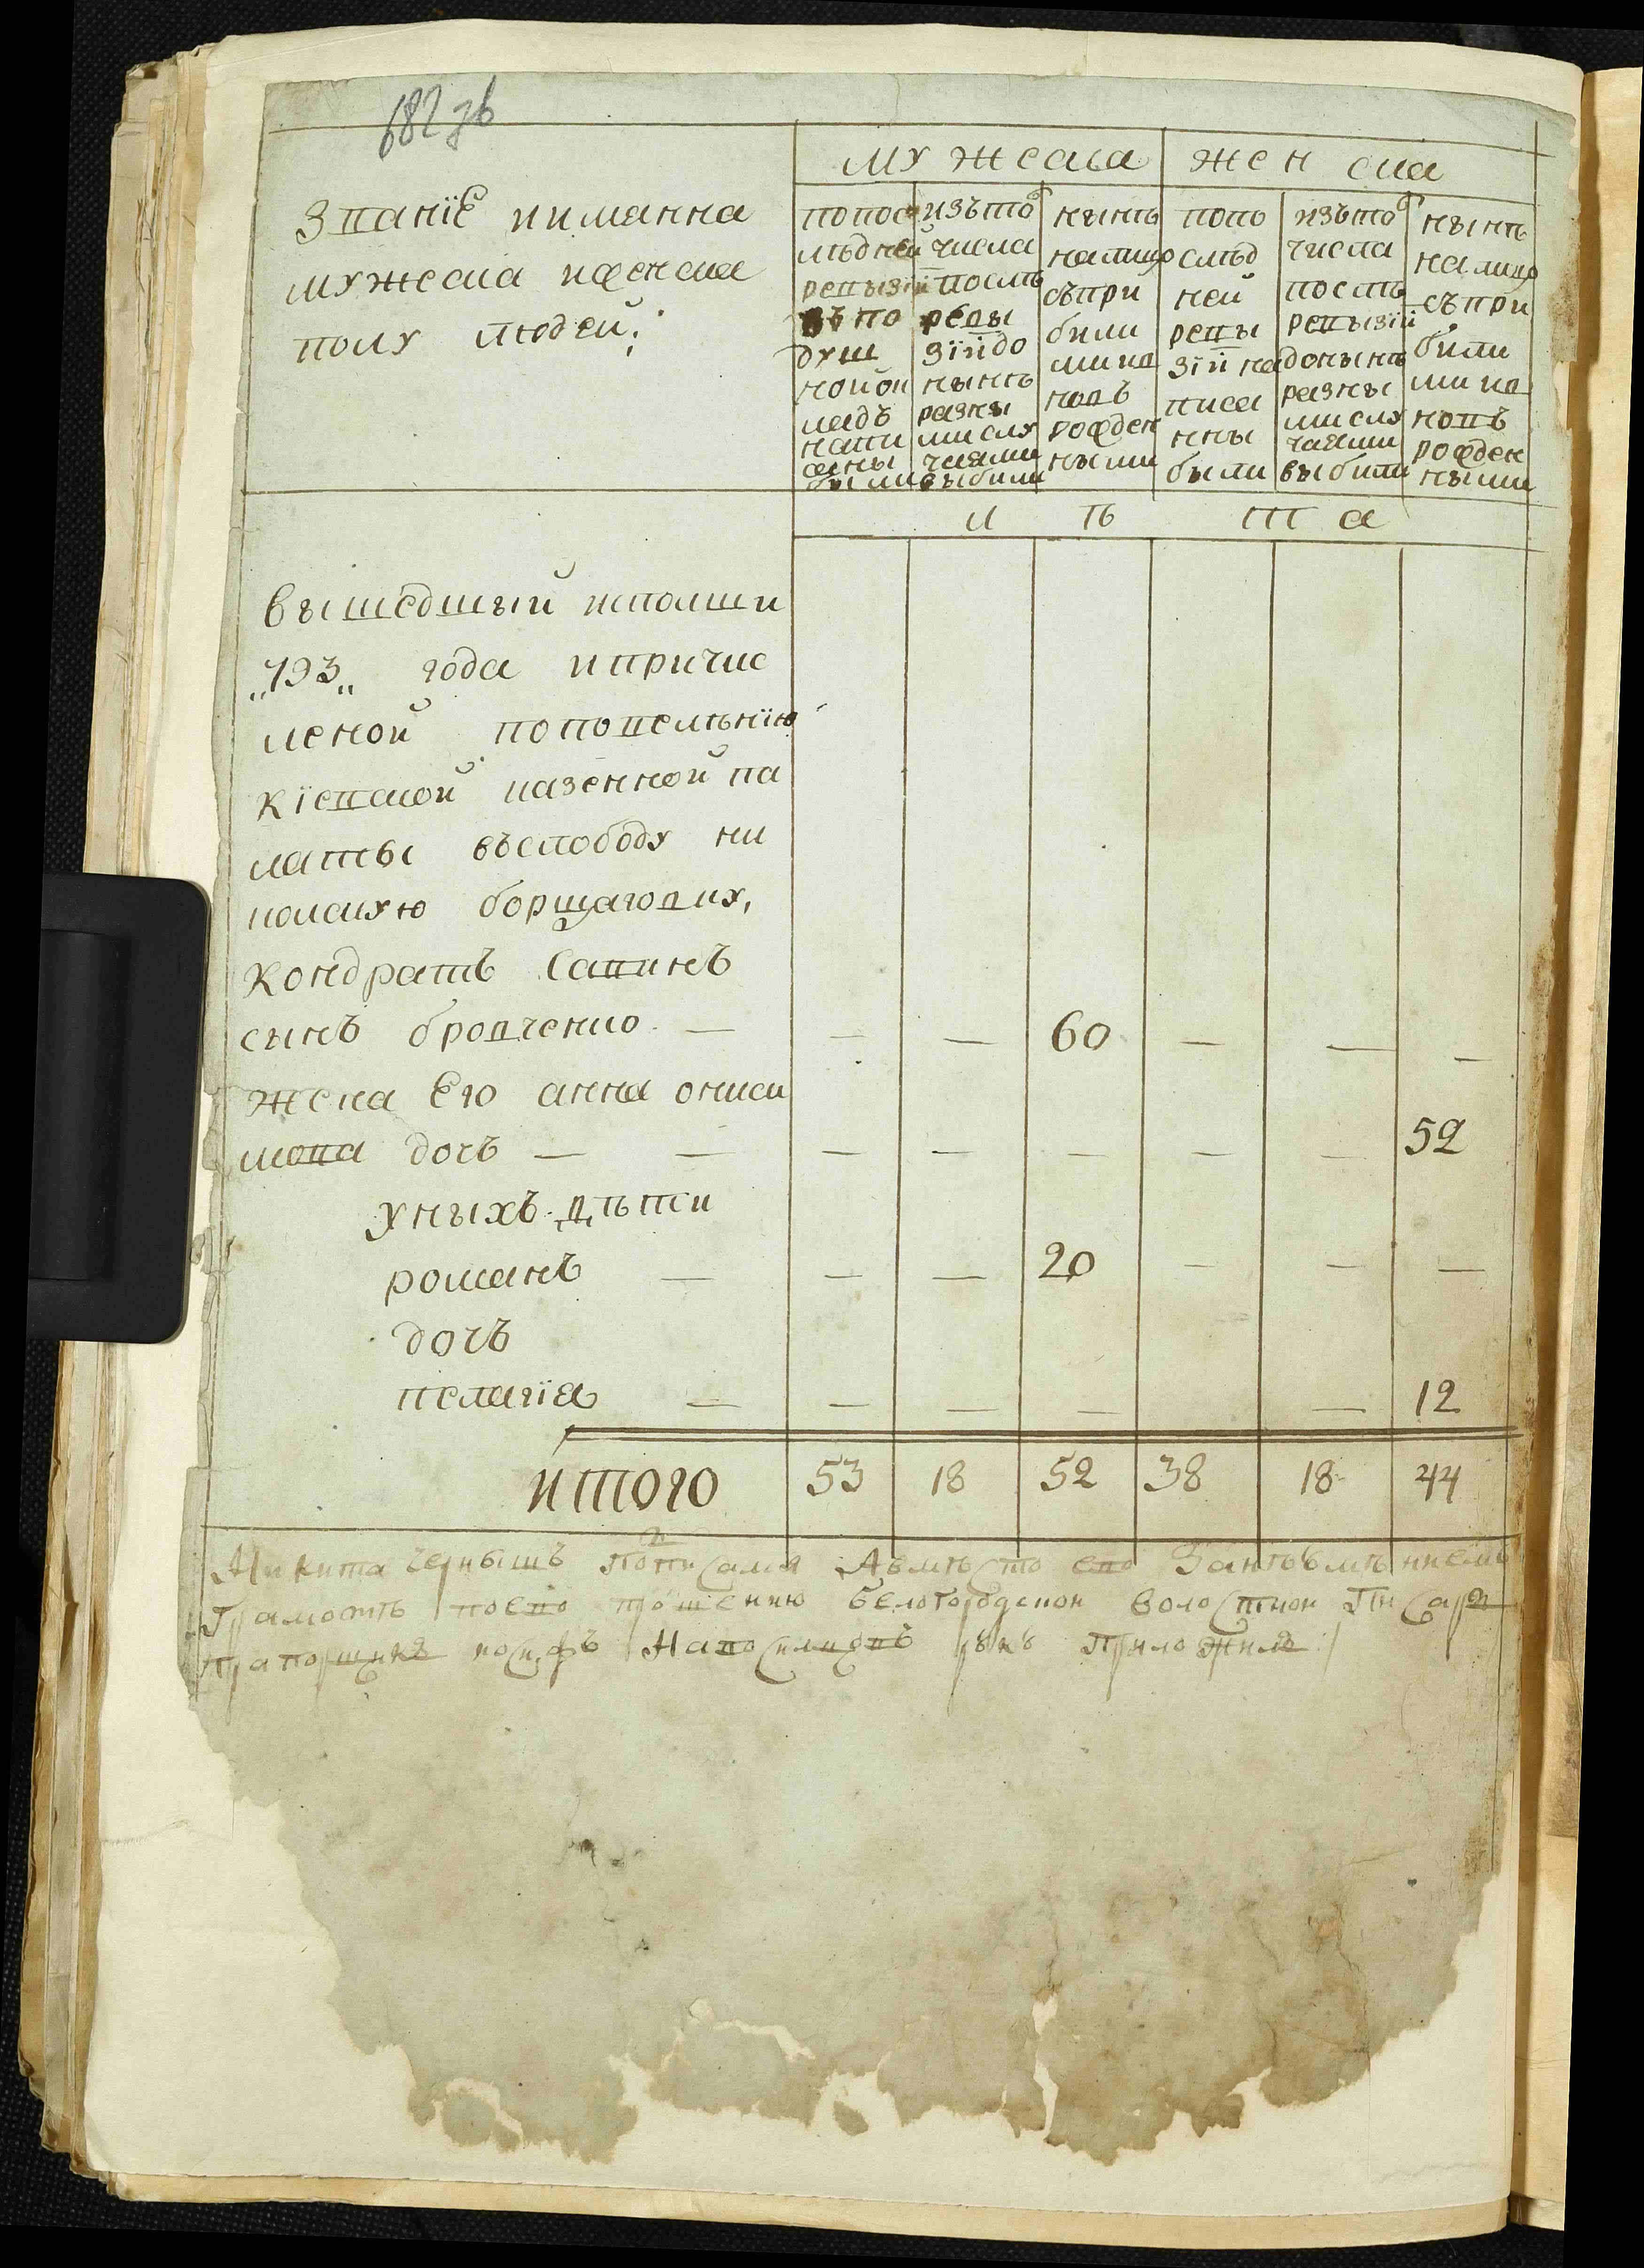 682 зв
мужеска женска
Званїе иимянна
мужеска иженска
полу людей:
попос
лѣдней
ревизїи
въ по
душ
ной ок
ладъ
напи
саны
были
изъ того
числа
послѣ
реви
зїи до
нынѣ
разны
ми слу
чаями
выбыли
нынѣ
налицо
съ при
были
ми и в
новъ
рожден
ными
попо
слѣд
ней
реви
зїи на
писа
нны
были
изъ того
числа
послѣ
ревизїи
донынѣ
разны
ми слу
чаями
выбыли
нынѣ
налицо
съ при
были
ми и в
новъ
рожден
ными
л ѣ т а
вышедшый исполши
„793„ года ипричис
леной поповелѣнїю
кїевской казенной па
латы въслободу ни
колскую борщаговку,
кондратъ савинъ
сынъ бровченко — — — 60 — — —
жена Его анна ониси
мова дочъ — — — — — — — 52
уныхъ дѣтей
романъ — — — 20 — — —
дочъ
пелагїя — — — — — 12
итого 53 18 52 38 18 44
Никита чернышъ Подписался Авмѣсто ево Занеумѣниемъ
Грамотѣ поево прошению белогородскои волостнои Писарь
Прапорщикъ иосифъ рукъ Приложилъ